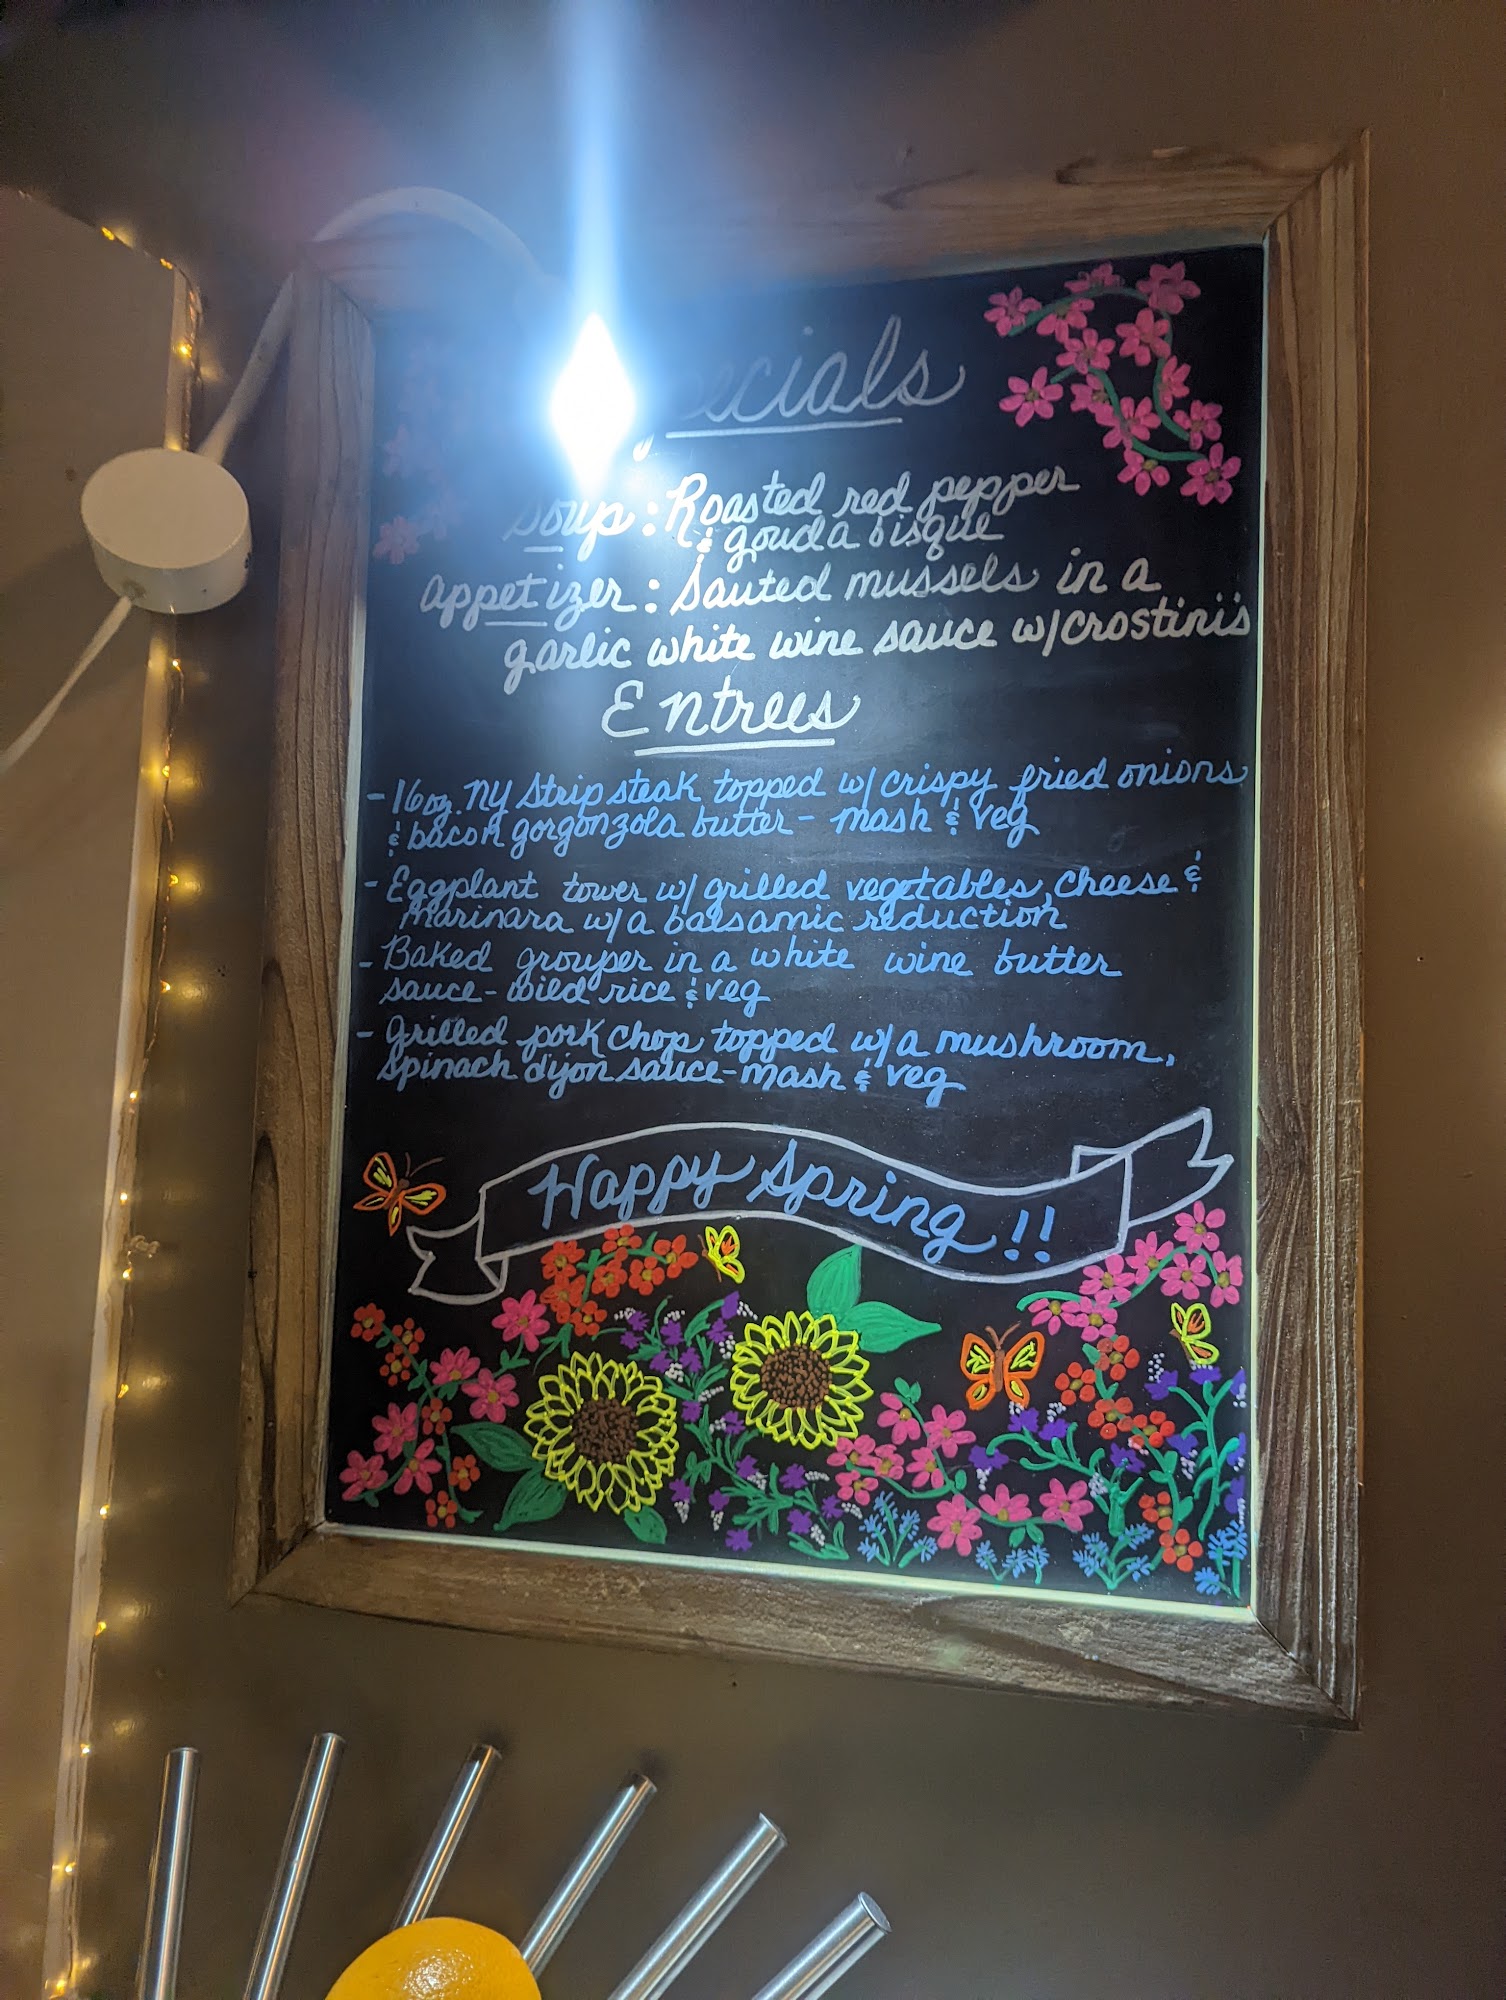 Specials
Soup: Roasted red pepper
& gouda bisque
Appetizer: Sauted mussels in a
garlic white wine sauce w/crostini's
Entrees
- 16oz. NY Strip steak topped w/ crispy fried onions
& bacon gorgonzola butter - mash & veg
- Eggplant tower w/ grilled vegetables, cheese &
marinara w/ a balsamic reduction
- Baked grouper in a white wine butter
sauce - wild rice & veg
- Grilled pork chop topped w/ a mushroom,
spinach dijon sauce - mash & veg
Happy Spring!!